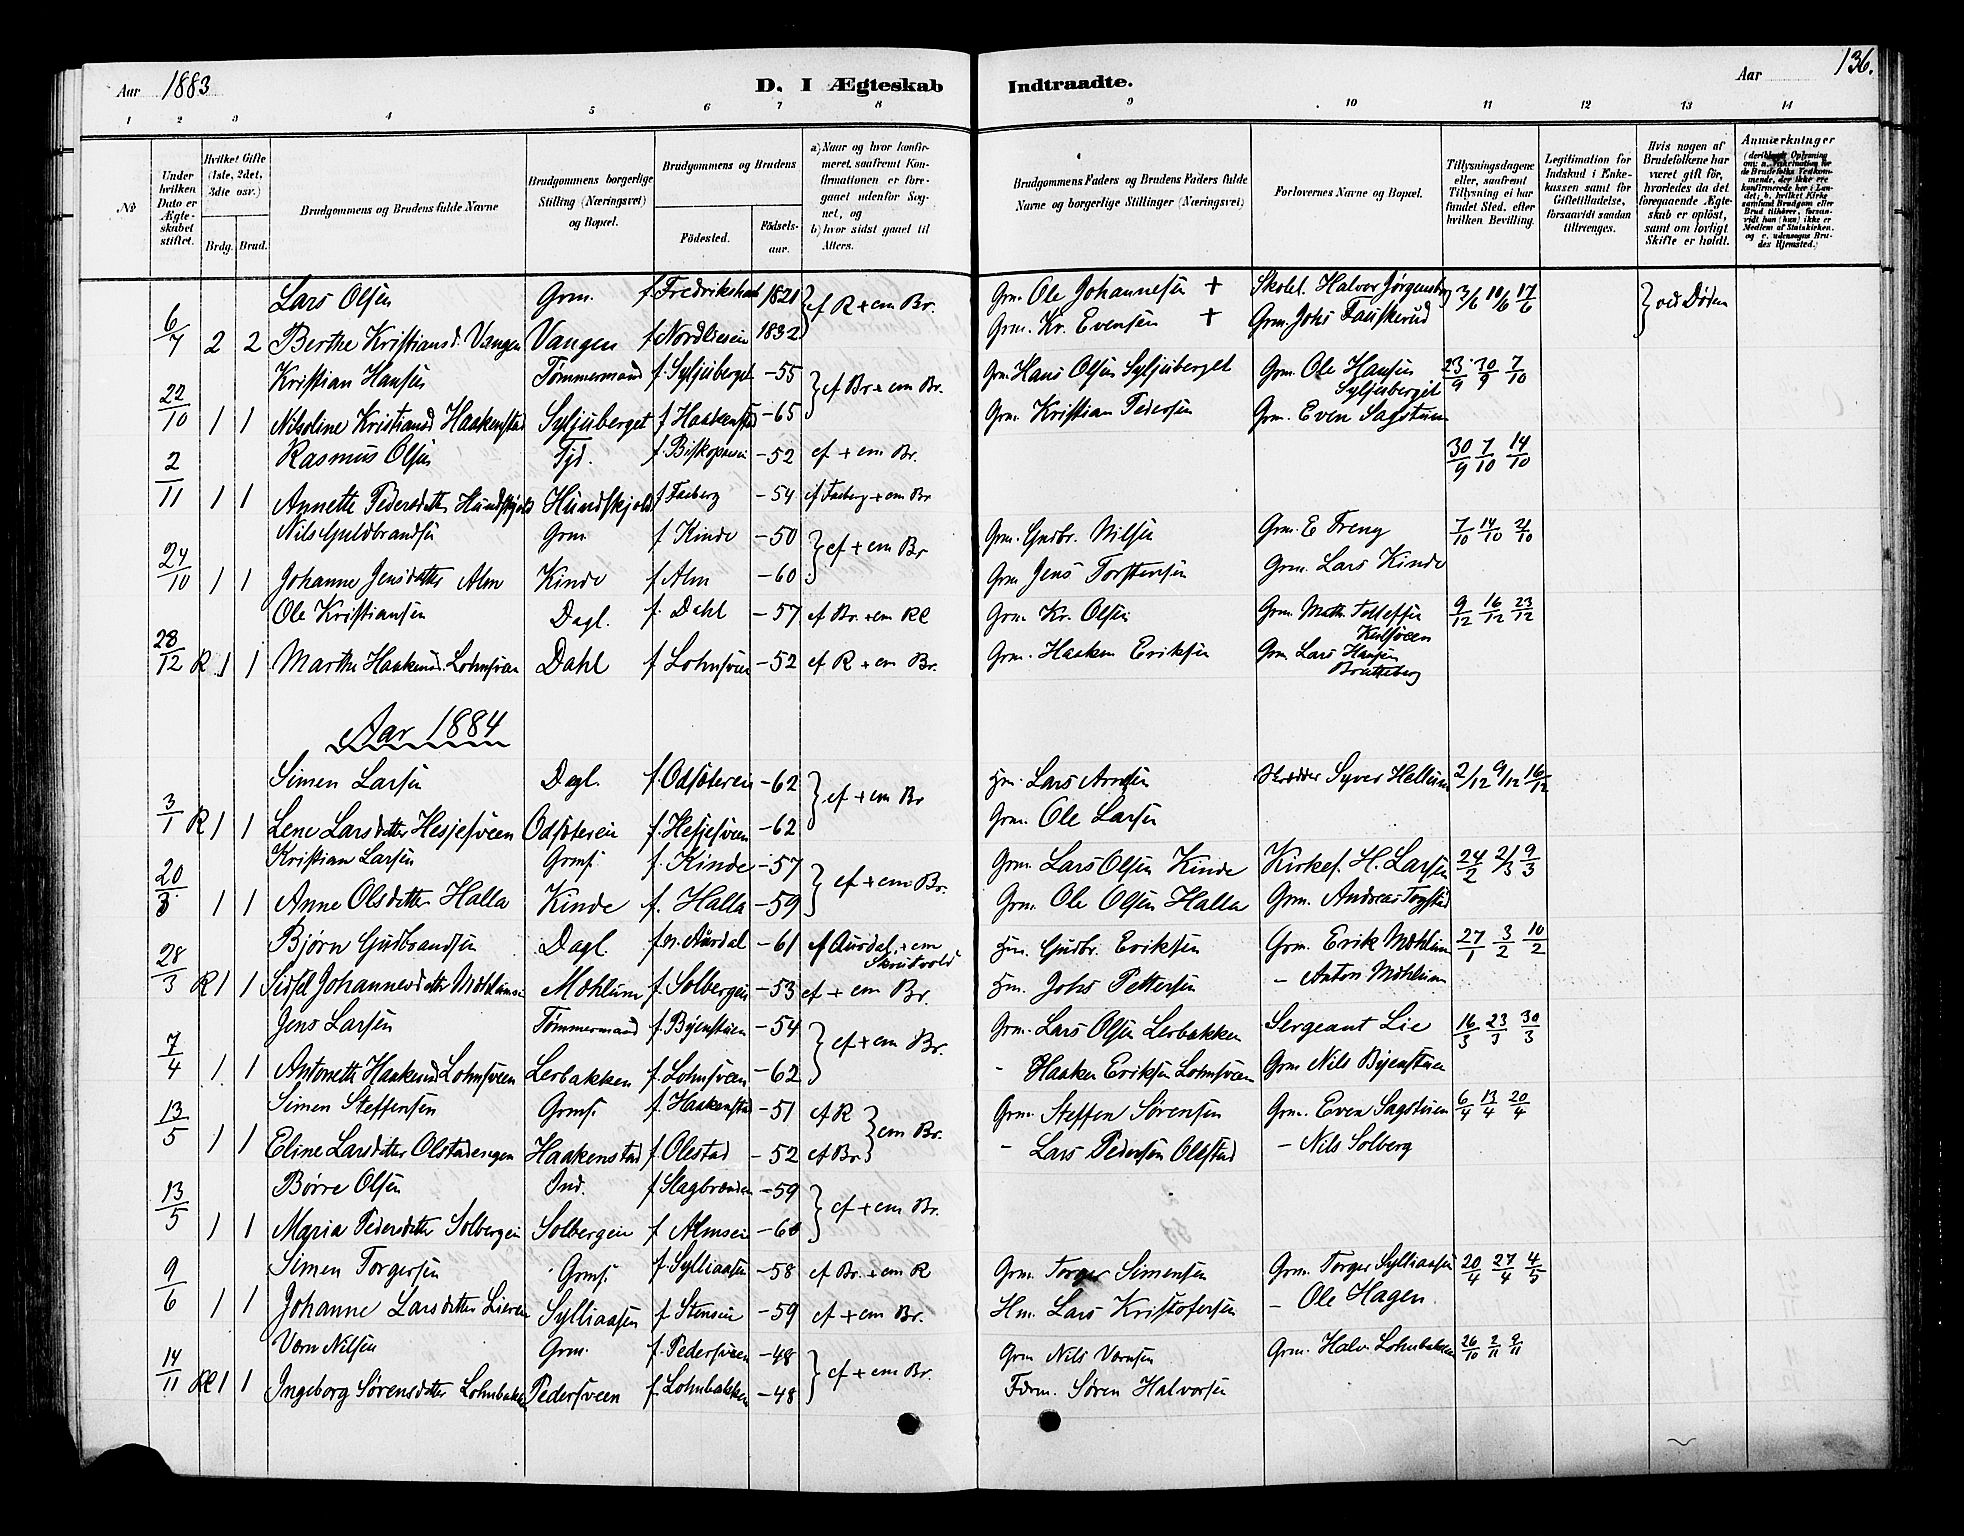 Aar 1883 D. I Ægteskab Indtraadte. Aar 136.
1 2 3 4 5 6 7 8 9 10 11 12 13 14
No
Under hvilken Dato er Ægteskabet stiftet.
Hvilket Gifte (1ste, 2det, 3die osv.)
Brdg. Brud.
Brudgommens og Brudens fulde Navne
Brudgommens borgerlige Stilling (Næringsvei) og Bopæl.
Brudgommens og Brudens
Födested. Födsels-aar.
a) Naar og hvor konfirmeret, saafremt Konfirmationen er foregaaet udenfor Sognet, og
b) hvor sidst gaaet til Alters.
Brudgommens Faders og Brudens Faders fulde Navne og borgerlige Stillinger (Næringsvei)
Forlovernes Navne og Bopæl.
Tillysningsdagene eller, saafremt Tillysning ei har fundet Sted, efter hvilken Bevilling.
Legitimation for Indskud i Enkekassen samt for Giftetilladelse, forsaavidt saadan tiltrænges.
Hvis nogen af Brudefolkene har været gift för, hvorledes da det foregaaende Ægteskab er oplöst, samt om lovligt Skifte er holdt.
Anmærkninger
Lars Olsen Grm. f. Fredrikshald 1821 } cf R + em Br. Grm. Ole Johannesen + Skolel. Halvor Jørgenstad 3/6 10/6 17/6 } ved Døden
6/7 2 2 Berthe Kristiansd. Vangen Vangen f Nordlieien 1832 Grm. Kr. Evensen + Grm. Johs Fauskerud
Kristian Hansen Tømmermand f. Syljuberget -55 } cf Br + em Br. Grm. Hans Olsen Syljuberget Grm. Ole Hansen Syljuberget 23/9 30/9 7/10
22/10 1 1 Nikoline Kristiansd Haakenstad Syljuberget f Haakenstad -65 Grm. Kristian Pedersen Grm. Even Sagstuen
Rasmus Olsen Tjd. f Biskopseien -52 cf + em Br. 30/9 7/10 14/10
2/11 1 1 Annette Pedersdatter Hundskjold Hundskjold f Faaberg -54 cf Faaberg + em Br
Nils Guldbrandsen Grm f Kinde -50 } cf + em Br Grm. Gudbr. Nilsen Grm. E Freng 7/10 14/10 21/10
24/10 1 1 Johanne Jensdatter Alm Kinde f Alm -60 Grm Jens Torstensen Grm. Lars Kinde
Ole Kristiansen Dagl. f. Dahl -57 cf Br. + em Rl Grm. Kr. Olsen Grm. Math. Tollefsen 9/12 16/12 23/12
28/12 R 1 1 Marthe Haakensd. Lohnsveen Dahl f Lohnsveen -52 cf R + em Br. Grm. Haaken Eriksen Grm Lars Hansen Bratteberg
Aar 1884
Simen Larsen Dagl. f. Odsøteien -62 } cf + em Br Hm. Lars Arnesen Skrædder Syver Hellum 2/12 9/12 16/12
3/1 R 1 1 Lene Larsdatter Hesjesveen Odsøteien f. Hesjesveen -62 Grm. Ole Larsen
Kristian Larsen Grms. f. Kinde -57 } cf + em Br. Grm. Lars Olsen Kinde Kirkes. H. Larsen 24/2 2/3 9/3
20/3 1 1 Anne Olsdatter Halla Kinde f. Halla -59 Grm. Ole Olsen Halla Grm. Andreas Togstad
Bjørn Gudbrandsen Dagl. f n. Aurdal -61 cf Aurdal + em Skrutvold Hm. Gudbr. Eriksen Grm. Erik Mæhlum 27/1 3/2 10/2
28/3 R 1 1 Sidsel Johannesdatter Mæhlumsei Mæhlum f. Solbergeii -53 cf + em Br. Hm. Johs Pettersen - Anton Mæhlum
Jens Larsen Tømmermand f. Byenstuen -54 } cf + em Br. Grm. Lars Olsen Lerbakken Sergeant Lie 16/3 23/3 30/3
7/4 1 1 Antonette Haakensd Lohnsveen Lerbakken f. Lohnsveen -62 - Haaken Eriksen Lohnsveen Grm Nils Byenstuen
Simen Steffensen Grms. f. Haakenstad -51 cf R } em Br. Grm. Steffen Sørensen Grm. Even Sagstuen 6/4 13/4 20/4
13/5 1 1 Eline Larsdatter Olstadengen Haakenstad f Olestad -52 cf Br - Lars Pedersen Olestad - Nils Solberg
Børre Olsen Ind. f Slagbrenden -59 } cf + em Br.
13/5 1 1 Maria Pedersdatter Solbergeie Solbergeie f Almsei -60
Simen Torgersen Grms. f. Sylliaasen -58 cf Br. + em R Grm. Torger Simensen Grm. Torger Sylliaasen 20/4 27/4 4/5
9/6 1 1 Johanne Larsdatter Lieren Sylliaasen f Stensei -59 cf + em Br. Hm. Lars Kristofersen - Ole Hagen
Værn Nilsen Grm. f. Pedersveen -48 } cf + em Br. Grm Nils Værnsen Grm. Halv. Lohnbakken 26/10 2/11 9/11
14/11 Rl 1 1 Ingeborg Sørensdatter Lohnbakken Pedersveen f. Lohnbakken -48 Form. Søren Halvorsen